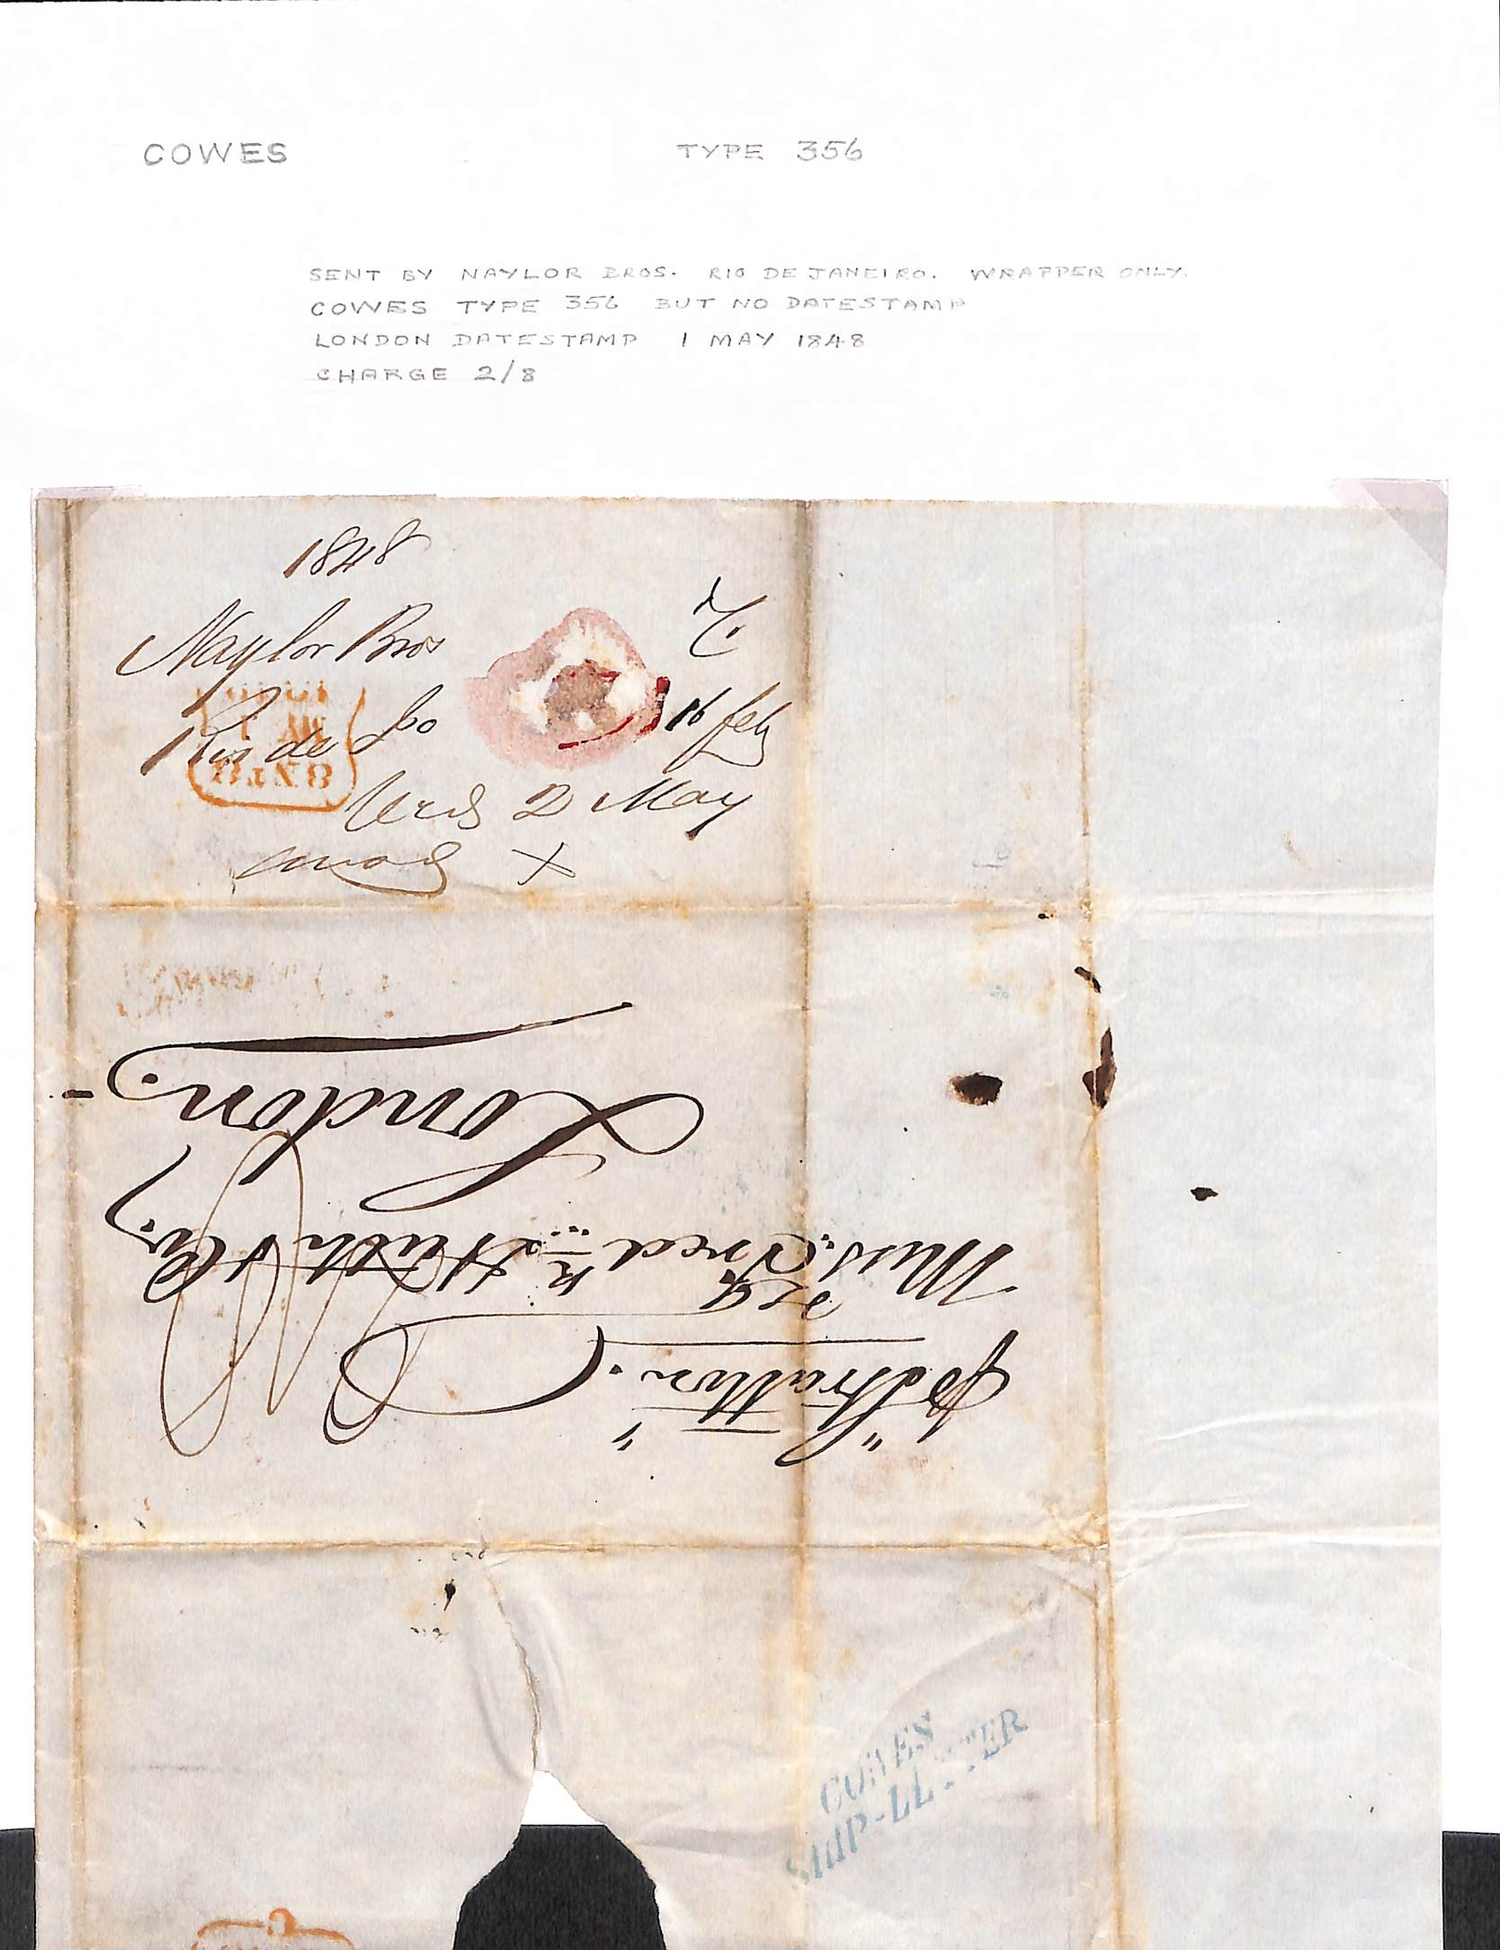 COWES
TYPE 356
SENT BY NAYLOR BROS. RIO DE JANEIRO. WRAPPER ONLY.
COWES TYPE 356 BUT NO DATESTAMP
LONDON DATESTAMP 1 MAY 1848
CHARGE 2/8
1848
Naylor Bros
Rio de Jo
16 feby
2 May
8NT8
MY 1
p "Stratton."
Mess. Fred Huth & Co.
London.
COWES
SHIP-LETTER